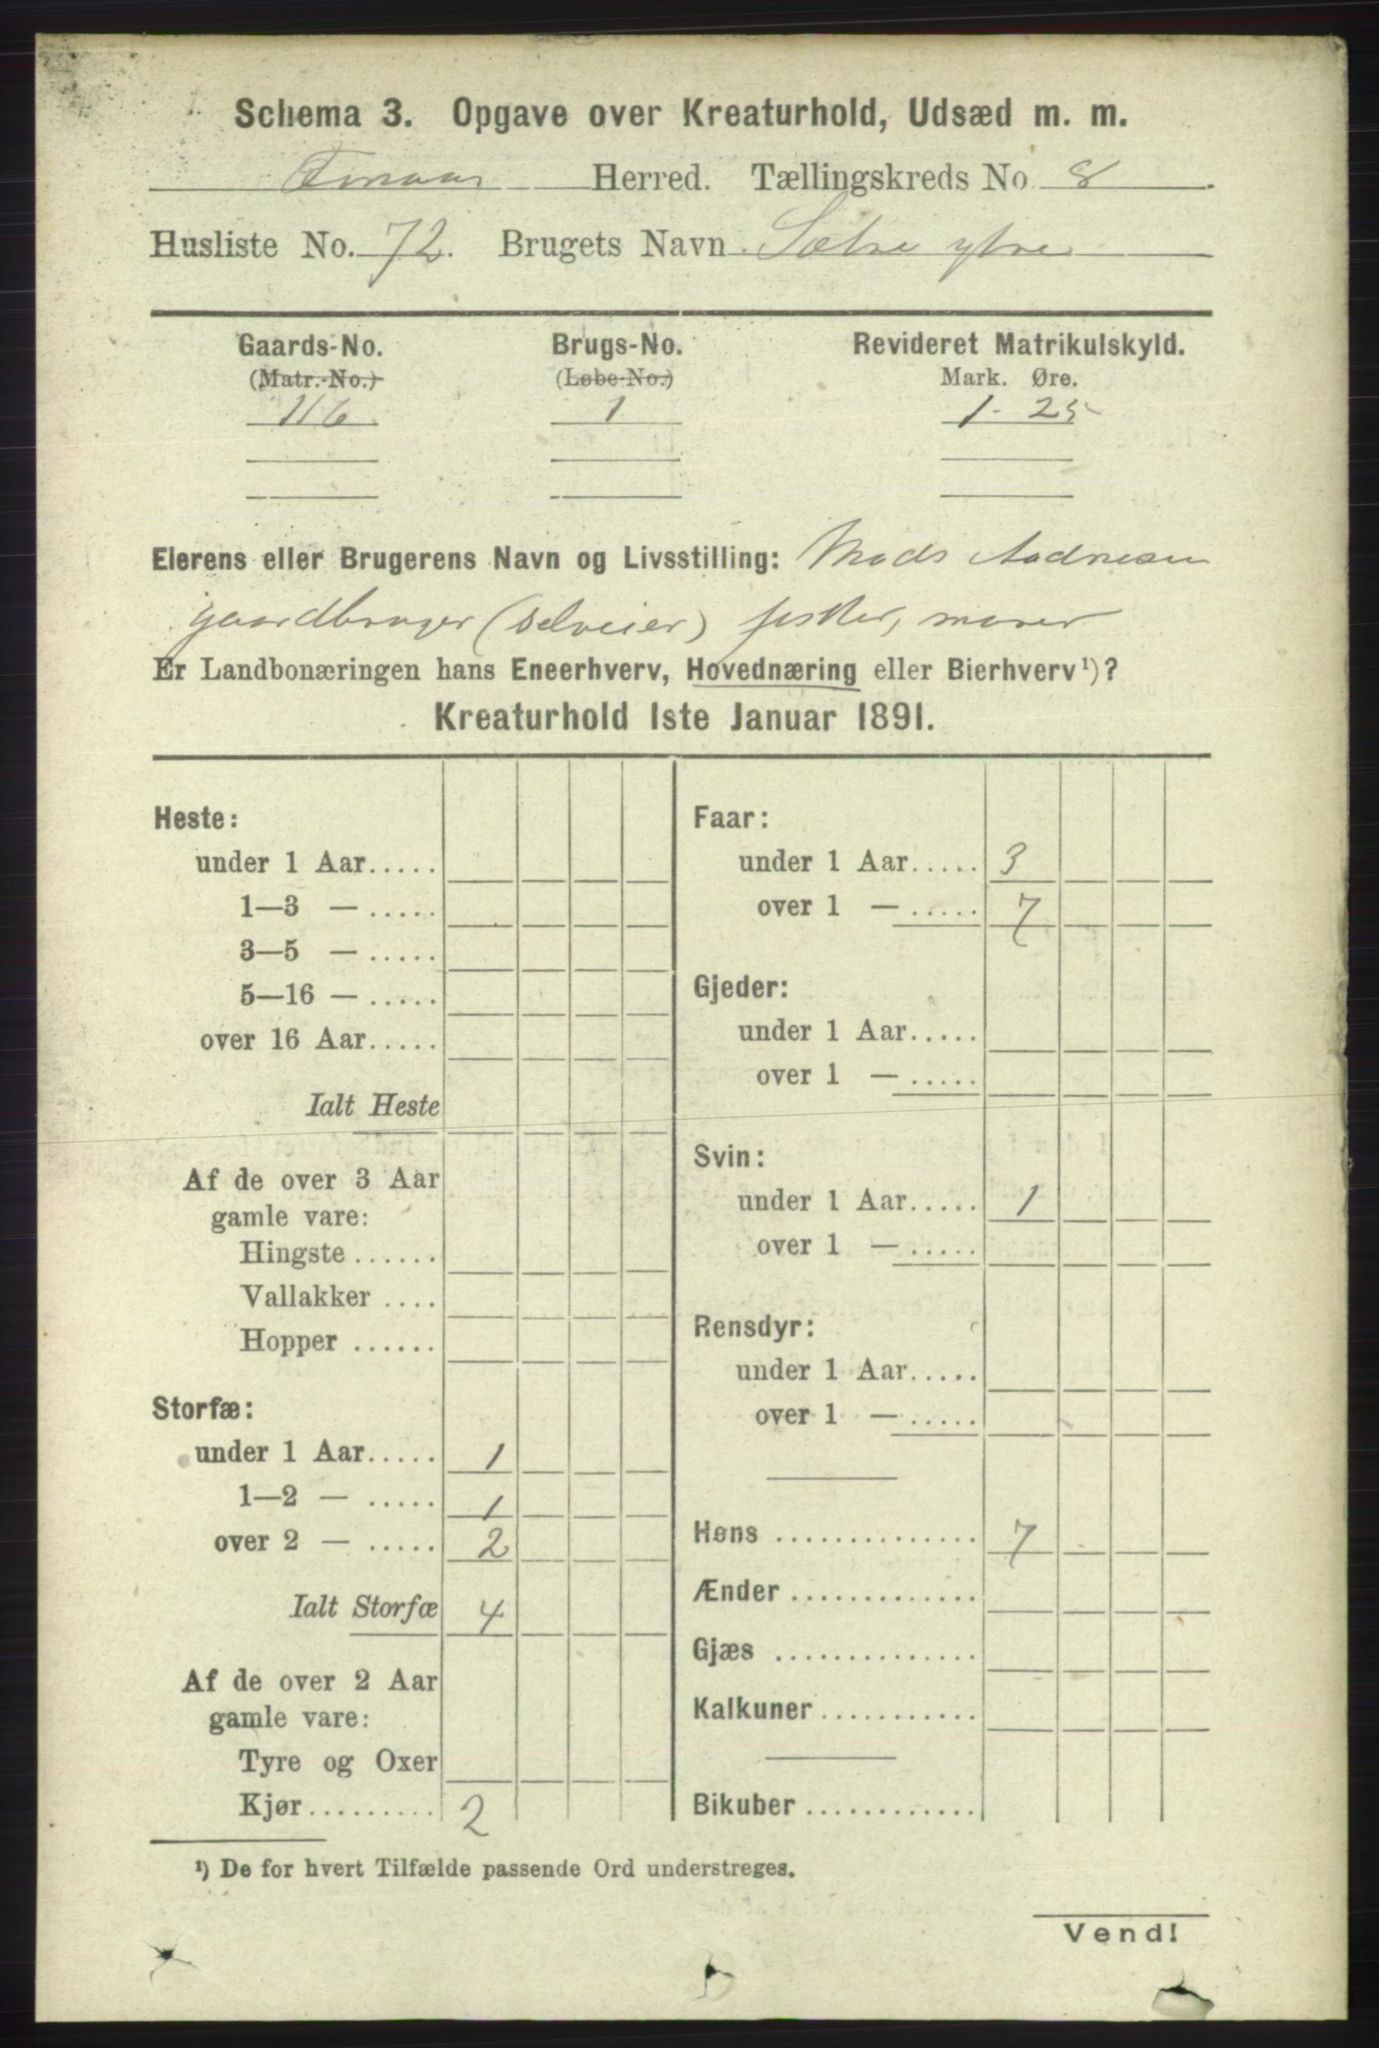 Schema 3. Opgave over Kreaturhold, Udsæd m. m.
Finaas Herred. Tællingskreds No. 8.
Husliste No. 72. Brugets Navn Sætre ytre
Gaards-No. Brugs-No. Revideret Matrikulskyld.
(Matr.-No.) (Løbe-No.) Mark. Øre.
116 1 1 - 25
Eierens eller Brugerens Navn og Livsstilling: Mads Aadnesen
gaardbruger (selveier) fisker, murer
Er Landbonæringen hans Eneerhverv, Hovednæring eller Bierhverv¹)?
Kreaturhold 1ste Januar 1891.
Heste:
under 1 Aar.....
1—3 — .....
3—5 — .....
5—16 — .....
over 16 Aar.....
Ialt Heste
Af de over 3 Aar
gamle vare:
Hingste ......
Vallakker ....
Hopper ......
Storfæ:
under 1 Aar..... 1
1—2 — ..... 1
over 2 — ..... 2
Ialt Storfæ 4
Af de over 2 Aar
gamle vare:
Tyre og Oxer
Kjør......... 2
Faar:
under 1 Aar..... 3
over 1 — ..... 7
Gjeder:
under 1 Aar.....
over 1 — .....
Svin:
under 1 Aar..... 1
over 1 — .....
Rensdyr:
under 1 Aar.....
over 1 — .....
Høns .............. 7
Ænder .............
Gjæs ..............
Kalkuner ...........
Bikuber ............
¹) De for hvert Tilfælde passende Ord understreges.
Vend!